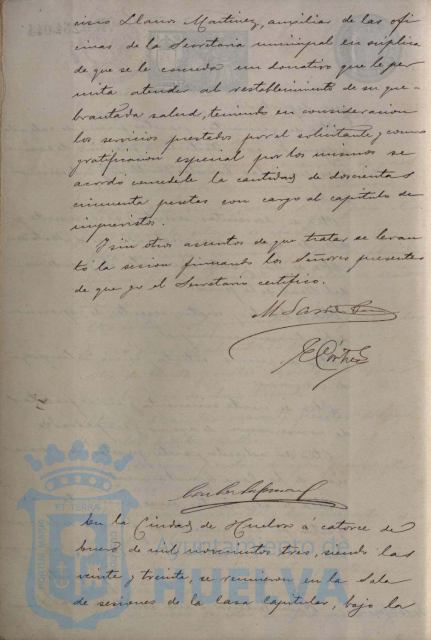 cisco Llanos Martinez, auxiliar de las ofi
cinas de la Secretaria municipal en suplica
de que se le conceda un donativo que le per
mita atender al restablecimiento de su que-
brantada salud, teniendo en consideracion
los servicios prestados por el solicitante y como
gratificacion especial por los mismos se
acordó concederle la cantidad de doscientas
cincuenta pesetas con cargo al capitulo de
imprevistos.
Y sin otros asuntos de que tratar se levan
tó la sesion firmando los Señores presentes
de que yo el Secretario certifico.
E Cortes
En la Ciudad de Huelva á catorce de
Enero de mil novecientos tres, siendo las
veinte y treinta, se reunieron en la Sala
de sesiones de la Casa Capitular, bajo la
Ayuntamiento de
HUELVA